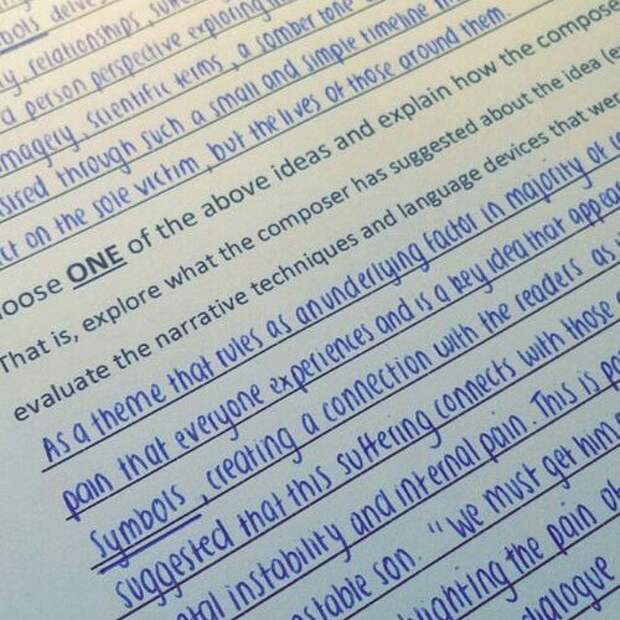 bols delves
relationships, suffe
d person perspective exploring
magery, scientific terms, a somber tone
sired through such a small and simple timeline
ct on the sole victim, but the lives of those around them.
oose ONE of the above ideas and explain how the compose
That is, explore what the composer has suggested about the idea (e
evaluate the narrative techniques and language devices that wer
As a theme that rules as an underlying factor in majority of
pain that everyone experiences and is a key idea that appea
Symbols, creating a connection with the readers as
suggested that this suffering connects with those
tal instability and internal pain. This is po
stable son. "We must get him
hlighting the pain of
dialogue